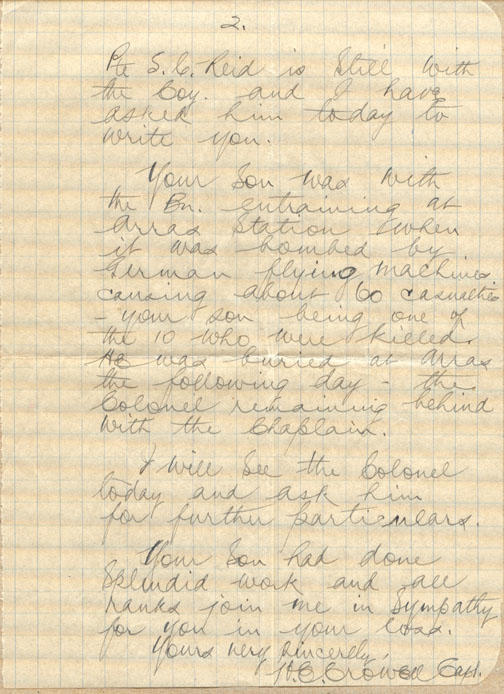 2.
Pte S. C. Reid is still with
the Coy. and I have
asked him today to
write you.
Your Son was with
the Bn. entraining at
Arras Station when
it was bombed by
German flying machines
causing about 60 casualties
- your son being one of
the 10 who were killed.
He was buried at Arras
the following day - the
Colonel remaining behind
with the Chaplain.
I will see the Colonel
today and ask him
for further particulars.
Your Son had done
Splendid work and all
ranks join me in Sympathy
for you in your loss.
Yours very sincerely,
Capt.